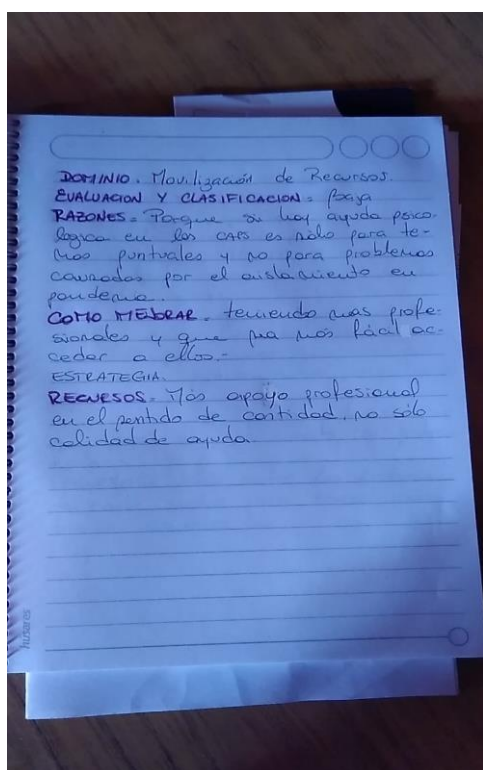 DOMINIO. Movilización de Recursos.
EVALUACION Y CLASIFICACION = Baja
RAZONES = Porque si hay ayuda psico-
logica en los CAPS es sólo para te-
mas puntuales y no para problemas
causados por el aislamiento en
pandemia.
COMO MEJORAR. teniendo mas profe-
sionales y que sea más fácil ac-
ceder a ellos.-
ESTRATEGIA.
RECURSOS = Más apoyo profesional
en el sentido de cantidad, no sólo
calidad de ayuda.
husares